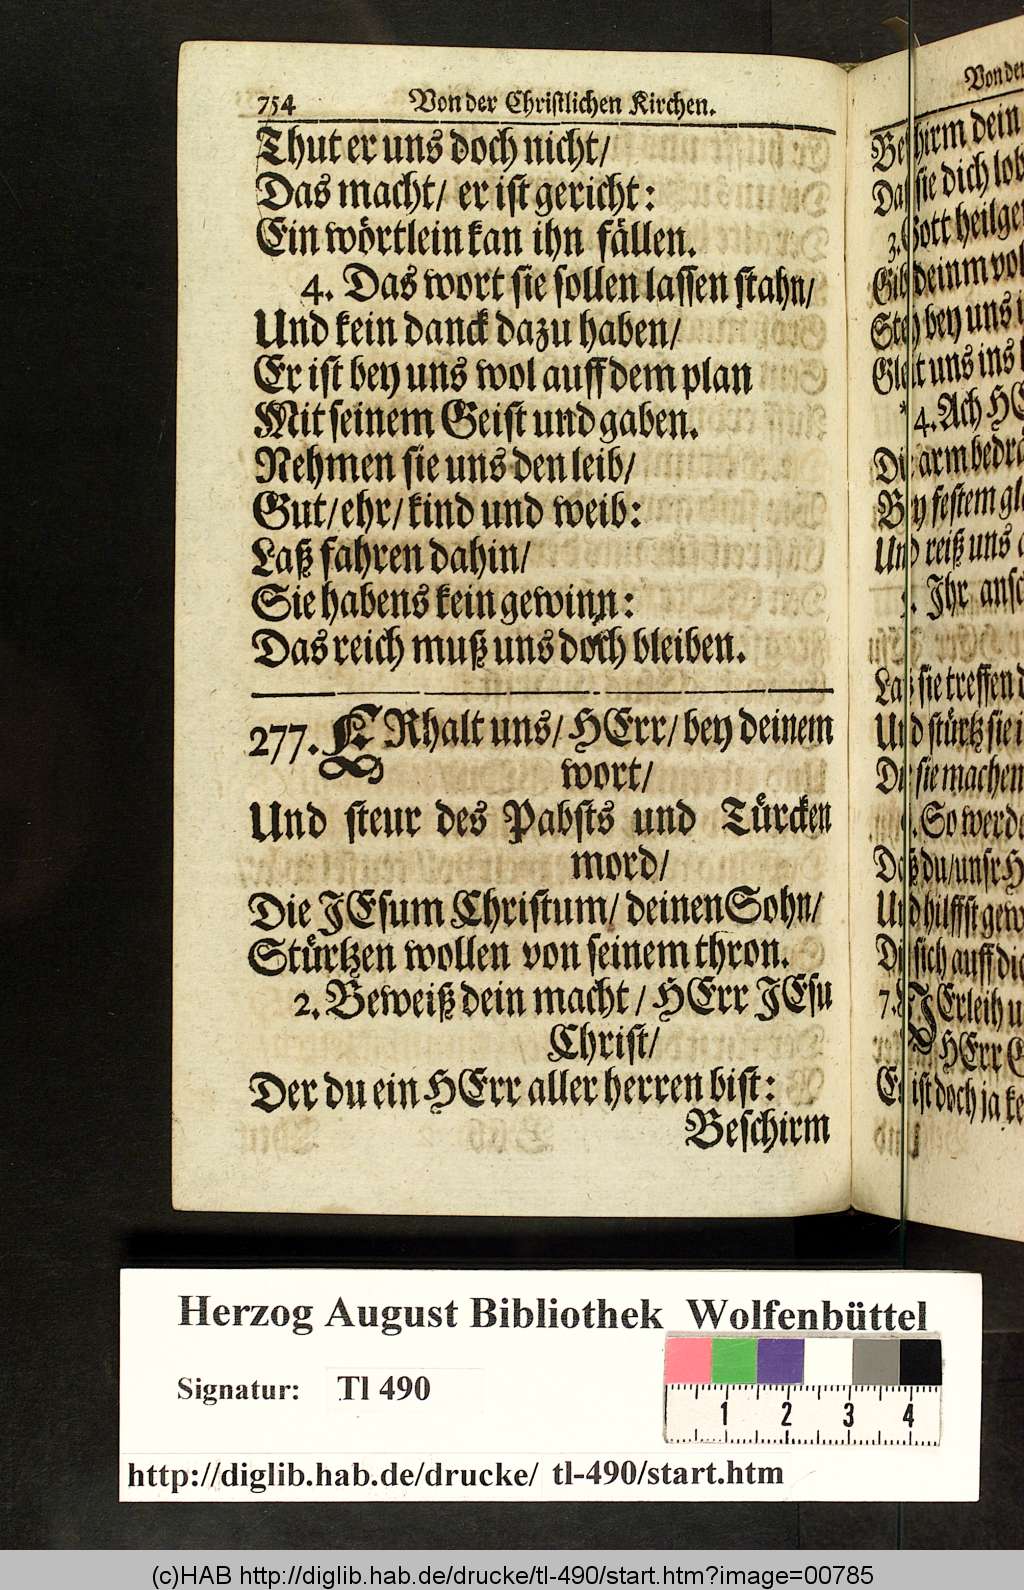 754 Von der Christlichen Kirchen.
Thut er uns doch nicht/
Das macht/ er ist gericht:
Ein wörtlein kan ihn fällen.
4. Das wort sie sollen lassen stahn/
Und kein danck dazu haben/
Er ist bey uns wol auff dem plan
Mit seinem Geist und gaben.
Nehmen sie uns den leib/
Gut/ ehr/ kind und weib:
Laß fahren dahin/
Sie habens kein gewinn:
Das reich muß uns doch bleiben.
277. ERhalt uns/ HErr/ bey deinem
wort/
Und steur des Pabsts und Türcken
mord/
Die JEsum Christum/ deinen Sohn/
Stürtzen wollen von seinem thron.
2. Beweiß dein macht/ HErr JEsu
Christ/
Der du ein HErr aller herren bist:
Beschirm
Von der
Beschirm dein
Daß sie dich lob
3. Gott heilger
Gib deinm vol
Steh bey uns i
Gleit uns ins
4. Ach HE
Die arm bedrä
Bey festem gla
Und reiß uns
Ihr ansch
Laß sie treffen d
Und stürtz sie i
Die sie machen
So werde
Daß du/ unsr H
Und hilffst gew
Die sich auff dich
7. VErleih u
HErr G
Es ist doch ja ke
Herzog August Bibliothek Wolfenbüttel
Signatur: Tl 490
1 2 3 4
http://diglib.hab.de/drucke/ tl-490/start.htm
(c)HAB http://diglib.hab.de/drucke/tl-490/start.htm?image=00785